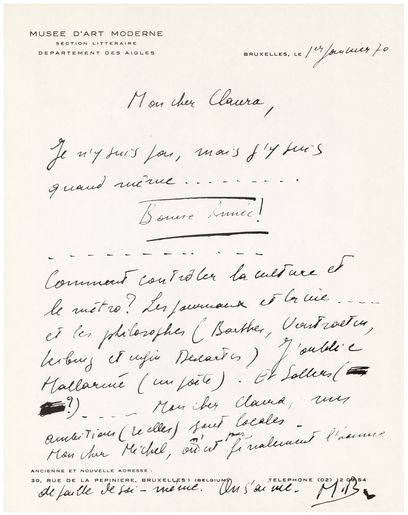 MUSEE D'ART MODERNE
SECTION LITTERAIRE
DEPARTEMENT DES AIGLES
BRUXELLES, LE 1er Janvier 70
Mon cher Claura,
Je n'y suis pas, mais j'y suis
quand même.........
Bonne Année!
Comment contrôler la culture et
le métro? Les journaux et la vie....
et les philosophes (Barthes, Verstraeten,
et enfin Descartes) J'oublie
Mallarmé (un poète). Et Sollers (
?) ----- Mon cher Claura, mes
ambitions (réelles) sont locales -
Mon cher Michel, on n'est pas finalement l'homme
de paille de soi-même. On s'aime. M.B.
ANCIENNE ET NOUVELLE ADRESSE :
30, RUE DE LA PEPINIERE, BRUXELLES 1 (BELGIUM) TELEPHONE (02) 12 09 54